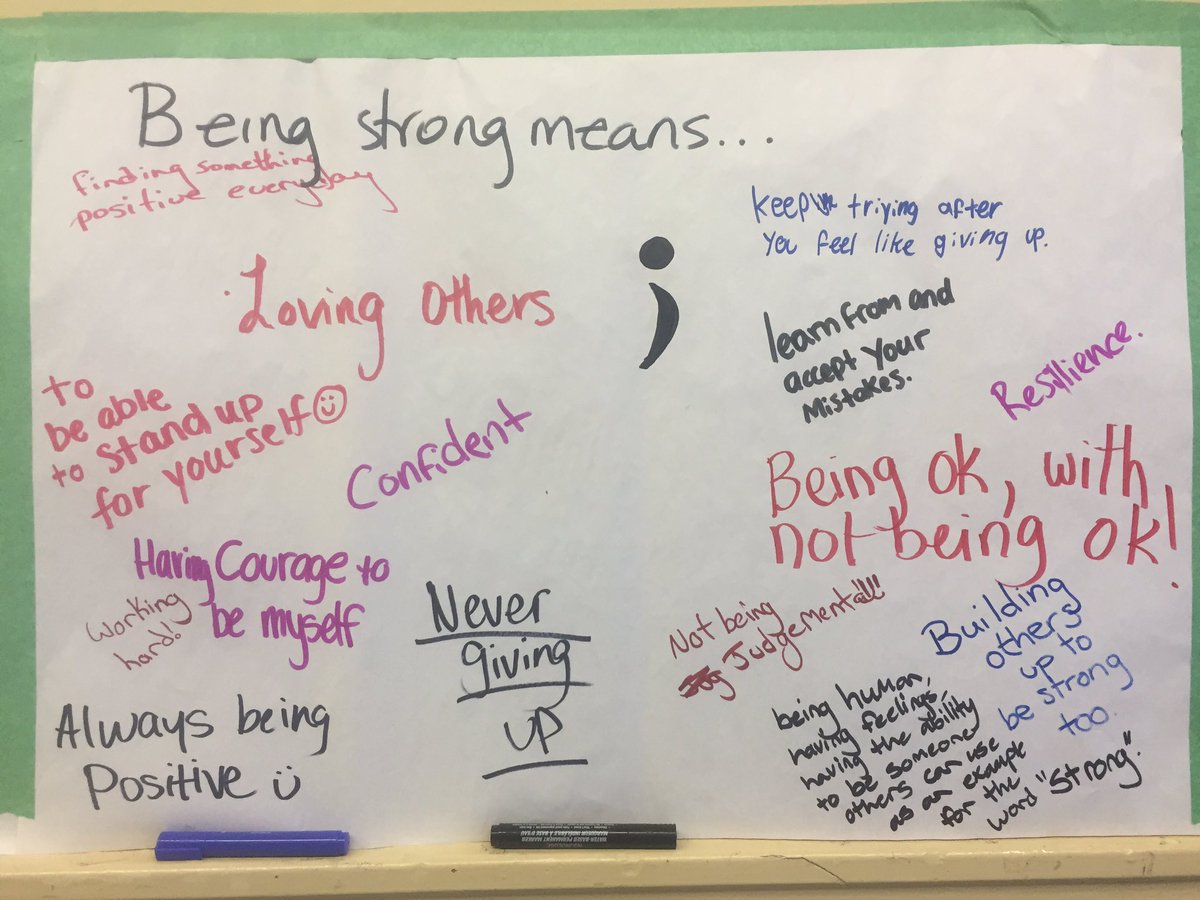 Being strong means...
finding something
positive everyday
keep triying after
you feel like giving up.
;
Loving Others
learn from and
accept your
mistakes.
Resillience.
to
be able
to stand up
for yourself
Confident
Being ok, with
not being ok!
Having Courage to
be myself
working
hard!
Never
giving
up
Not being
Judgemental!!
Building
others
up to
be strong
too.
Always being
Positive
being human,
having feelings,
having the ability
to be someone
others can use
as an example
for the
word "strong".
WATER-BASED PERMANENT MARKER